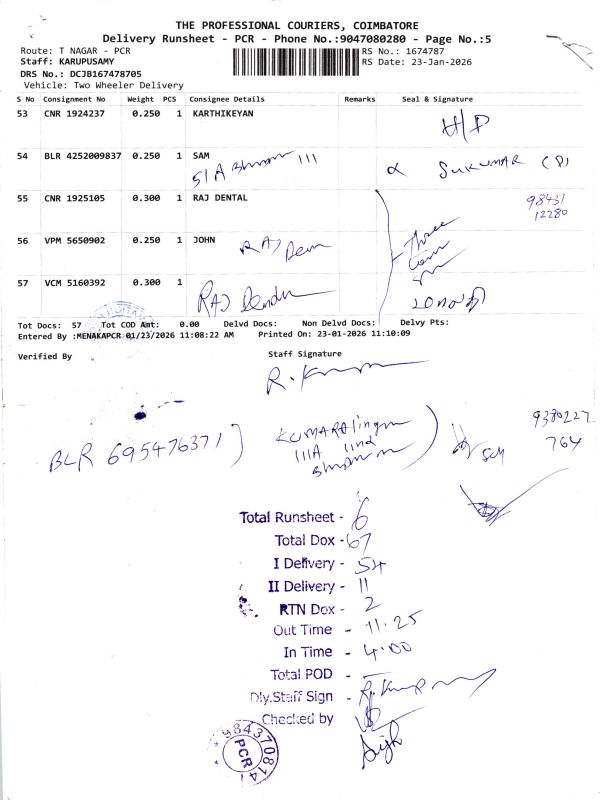 THE PROFESSIONAL COURIERS, COIMBATORE
Delivery Runsheet - PCR - Phone No.:9047080280 - Page No.:5
Route: T NAGAR - PCR
RS No.: 1674787
Staff: KARUPUSAMY
RS Date: 23-Jan-2026
DRS No.: DCJB167478705
Vehicle: Two Wheeler Delivery
S No Consignment No Weight PCS Consignee Details Remarks Seal & Signature
53 CNR 1924237 0.250 1 KARTHIKEYAN H/P
54 BLR 4252009837 0.250 1 SAM
SUKUMAR (P)
55 CNR 1925105 0.300 1 RAJ DENTAL
98431
12280
56 VPM 5650902 0.250 1 JOHN
RAJ
Three
57 VCM 5160392 0.300 1
RAJ
Tot Docs: 57 Tot COD Amt: 0.00 Delvd Docs: Non Delvd Docs: Delvy Pts:
Entered By :MENAKAPCR 01/23/2026 11:08:22 AM Printed On: 23-01-2026 11:10:09
Verified By Staff Signature
BLR 695476371
KUMARAlingam
IIIA
9380227
764
Total Runsheet - 6
Total Dox - 67
I Delivery - 54
II Delivery - 11
RTN Dox - 2
Out Time - 11.25
In Time - 4.00
Total POD -
Dly.Staff Sign -
Checked by
9843708147
PCR